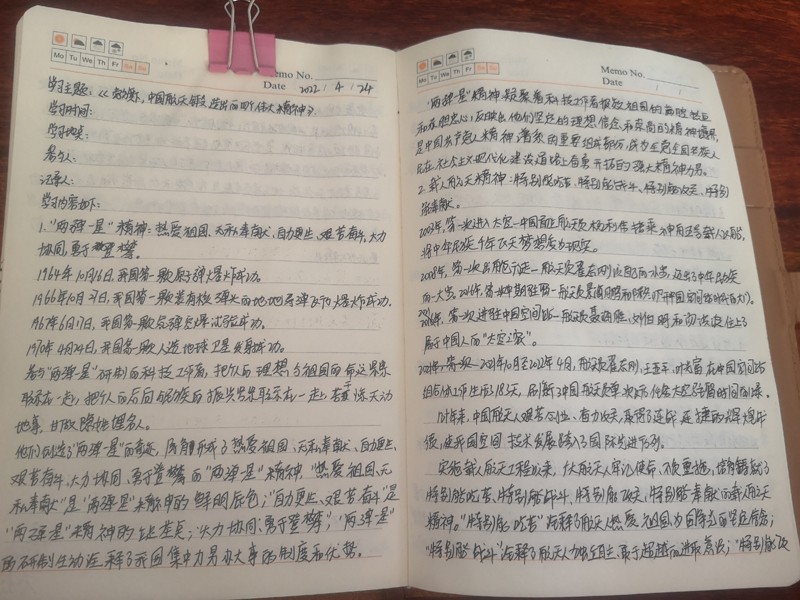 Mo Tu We Th Fr Sa Su
Memo No.
Date 2022 / 4 / 24
学习主题:《致敬,中国航天铸造出四个伟大精神》
学习时间:
学习地点:
参与人:
记录人:
学习内容如下:
1. "两弹一星"精神:热爱祖国、无私奉献、自力更生、艰苦奋斗、大力
协同、勇于登攀。
1964年10月16日,我国第一颗原子弹爆炸成功.
1966年10月27日,我国第一颗装有核弹头的地地导弹飞行爆炸成功.
1967年6月17日,我国第一颗氢弹空爆试验成功.
1970年4月24日,我国第一颗人造地球卫星发射成功.
参与"两弹一星"研制的科技工作者,把个人的理想与祖国的命运紧紧
联系在一起,把个人的志向与民族的振兴紧紧联系在一起,甘做惊天动
地事,甘做隐姓埋名人。
他们创造了"两弹一星"的奇迹,孕育形成了热爱祖国、无私奉献、自力更生、
艰苦奋斗、大力协同、勇于登攀的"两弹一星"精神,"热爱祖国、无
私奉献"是"两弹一星"精神的鲜明底色;"自力更生、艰苦奋斗"是
"两弹一星"精神的立足点;"大力协同、勇于登攀",“两弹一星"
的研制生动诠释了我国集中力量办大事的制度和优势。
Mo Tu We Th Fr Sa Su
Memo No.
Date / /
"两弹一星"精神凝聚着科技工作者报效祖国的满腔热血
和赤胆忠心,反映出他们坚定的理想信念和崇高的精神境界,
是中国共产党人精神谱系的重要组成部分,成为全党全国各族人
民在社会主义现代化建设道路上奋勇开拓的强大精神力量。
2. 载人航天精神:特别能吃苦、特别能战斗、特别能攻关、特别
能奉献。
2003年,第一次进入太空—中国首飞航天员杨利伟搭乘神舟五号载人飞船,
将中华民族千年飞天梦想变为现实。
2008年,第一次出舱行走—航天员翟志刚
的一大步。2016年,第一次中期驻留—航天员景海鹏和陈冬
2021年,第一次进驻中国空间站—航天员聂海胜、刘伯明和汤洪波住上了
属于中国人的"太空之家"。
2021年10月至2022年4月,航天员翟志刚、王亚平、叶光富在中国空间站
组合体工作生活了183天,刷新了中国航天员单次飞行任务太空驻留时间的纪录。
几十年来,中国航天人艰苦创业、奋力攻关,取得了连战连捷的辉煌战
绩,使我国空间技术发展跨入了国际先进行列。
实施载人航天工程以来,航天人牢记使命、不负重托,培育铸就了
特别能吃苦、特别能战斗、特别能攻关、特别能奉献的载人航天
精神。"特别能吃苦"诠释了航天人热爱祖国、为国争光的坚定信念;
"特别能战斗"诠释了航天人独立自主、敢于超越的进取意识;"特别能攻